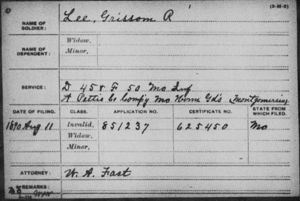 (3-22-5)
NAME OF SOLDIER: Lee, Grissom R
NAME OF DEPENDENT: Widow,
Minor,
SERVICE: D 45 & F 50 Mo Inf
A Pettis Co Compy Mo Home Gds (Montgomerius
DATE OF FILING. CLASS. APPLICATION NO. CERTIFICATE NO.
1890 Aug 11 Invalid, 851237 625450 Mo
Widow,
Minor,
ATTORNEY: W. A. Fast
REMARKS: